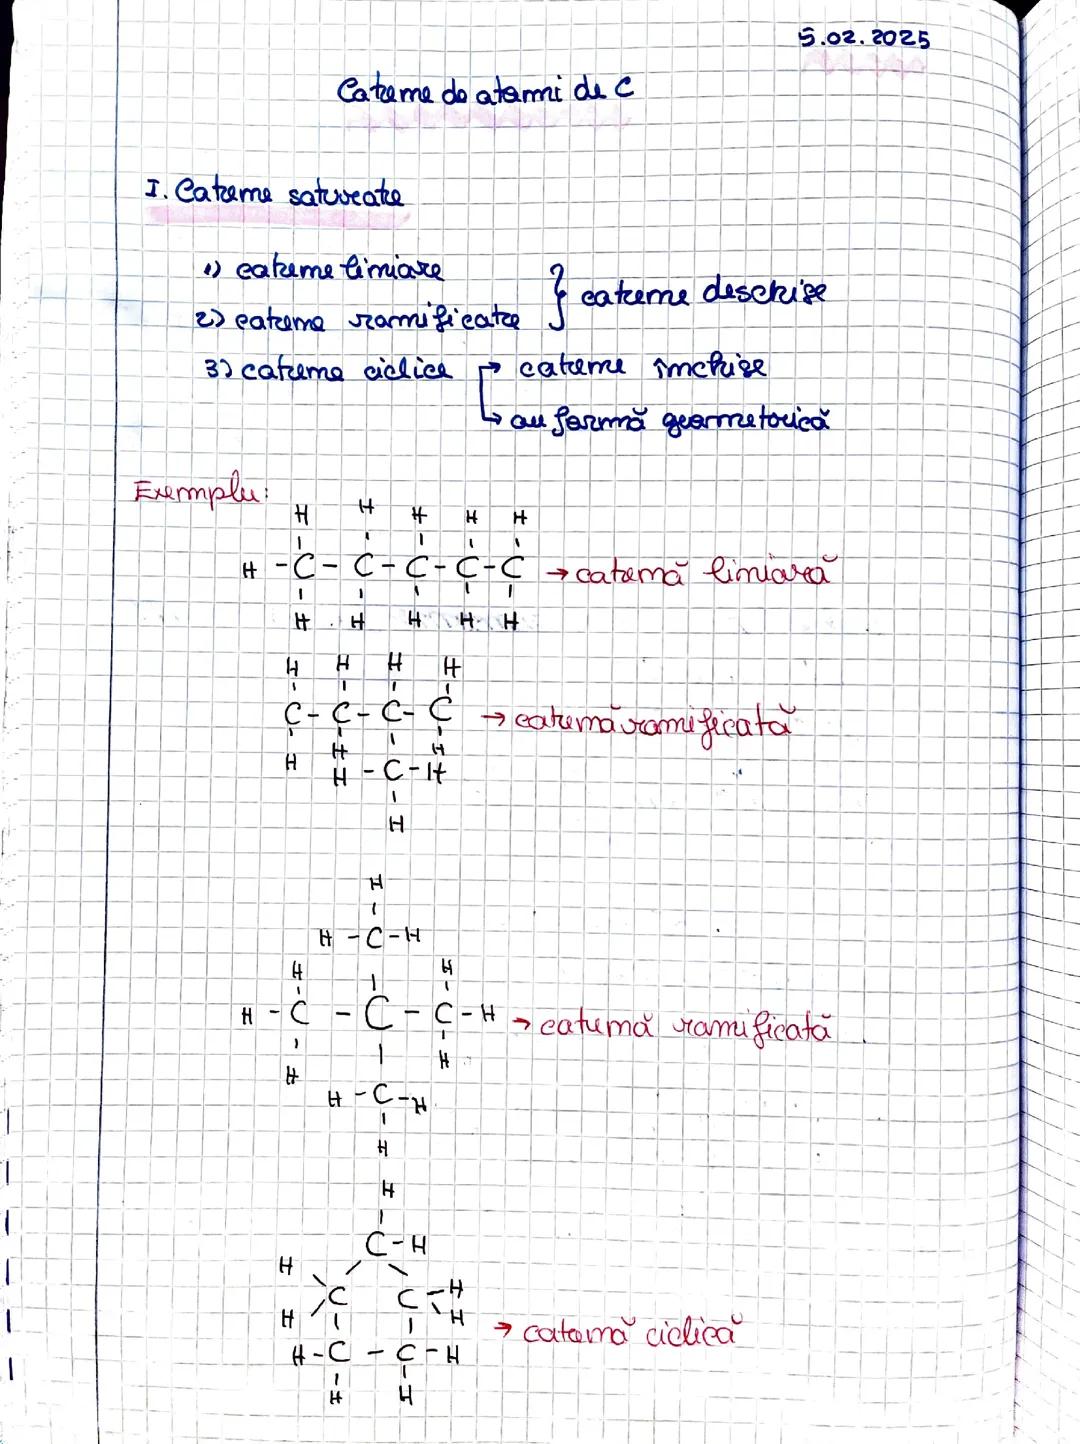 5.02.2025
Catene de atomi de C
I. Catene saturate
1) catene liniare
2) catene ramificate } catene deschise
3) catene ciclice → catene închise
↳ au formă geometrică
Exemplu:
H H H H H
H - C - C - C - C - C → catenă liniară
H H H H H
H H H H
C - C - C - C → catenă ramificată
H H H
H - C - H
H
H
H - C - H
H H
H - C - C - C - H → catenă ramificată
H H
H - C - H
H
H
C - H
H C C H
H H → catenă ciclică
H - C - C - H
H H